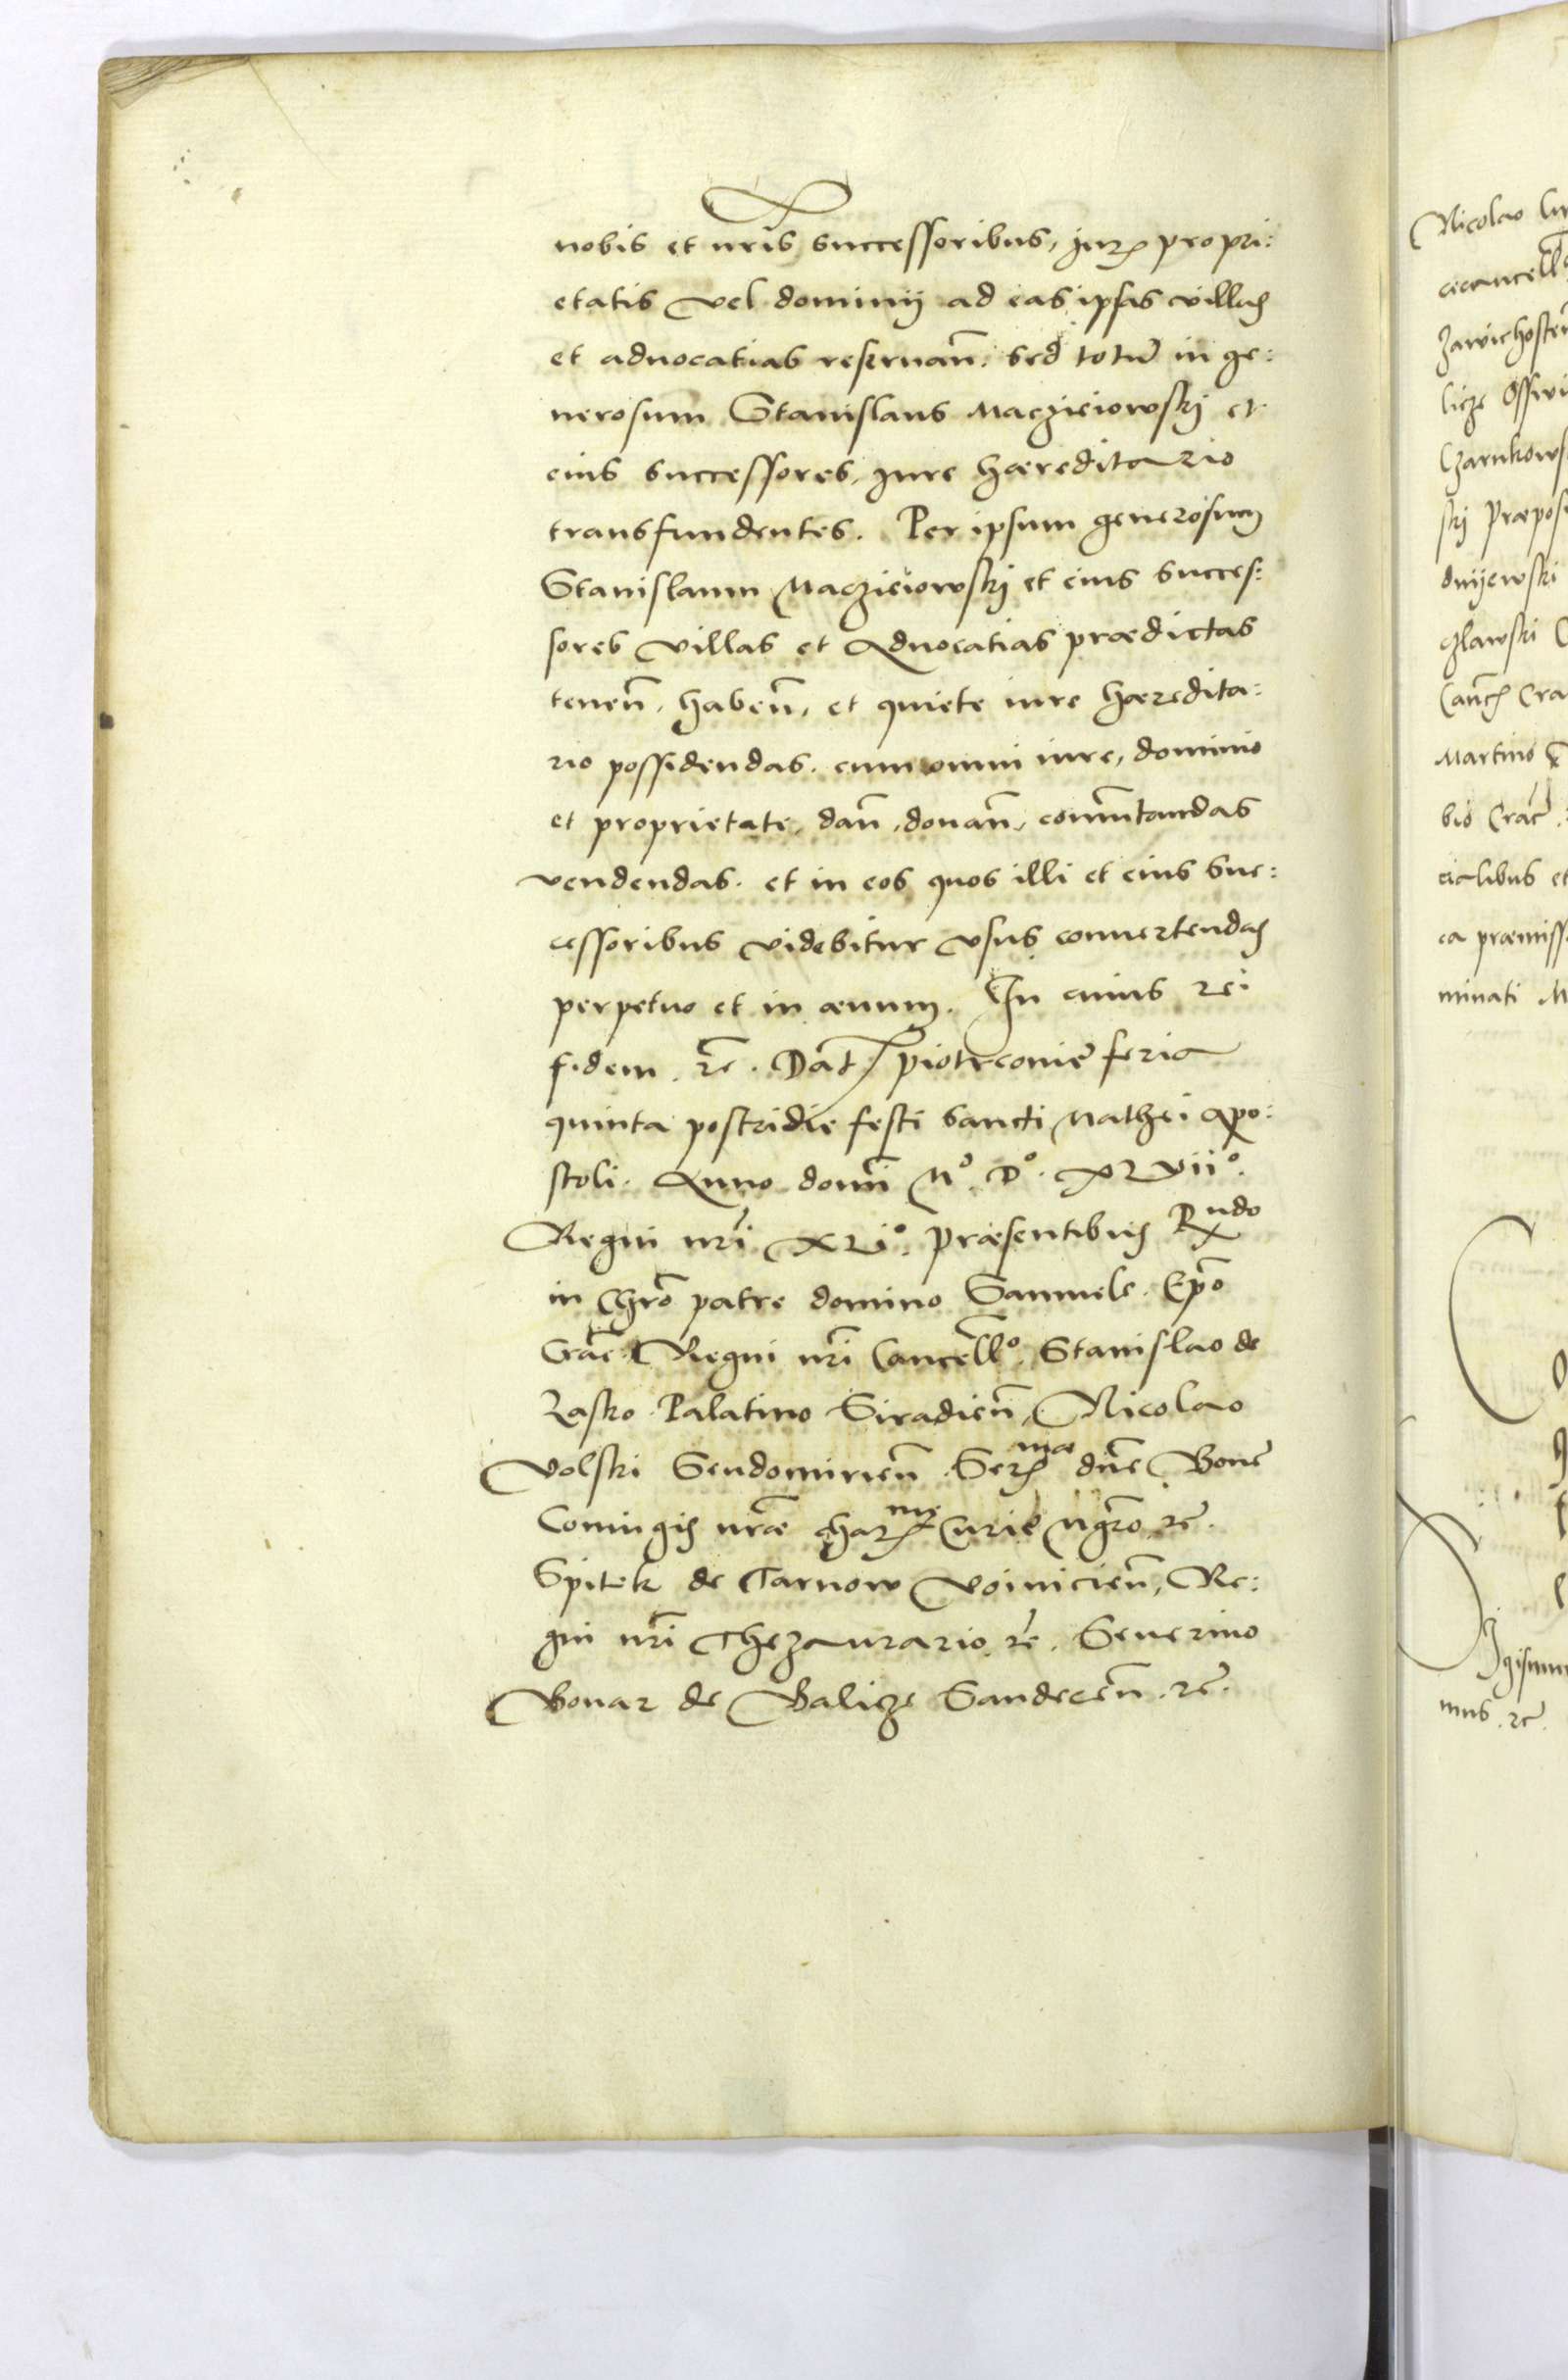 nobis et nris successoribus, jurꝭ propri:
etatis vel dominij ad eas ipsas villas
et aduocatias reseruan̄. sed totū in ge:
nerosum Stanislaus Maczieiowskj et
eius successores, jure hæreditario
transfundentes. Per ipsum generosum
Stanislaum Macziéiowskj et eius succes:
sores villas et Aduocatias prædictas
tenen̄. haben̄. et quiete iure hæredita:
rio possidendas. cum omni iure, dominio
et proprietate, dan̄, donan̄, com̄utandas
vendendas. et in eos quos illi et eius suc:
cessoribus videbitur vsus conuertendas
perpetuo et in æuum. In cuius rei
fidem. rc̄. Dat̄ piotrconiē feria
quinta postridie festi sancti Mathei Apo:
stoli. Anno domi M°. D°. XLvii°.
Regni nri XLi°. præsentibus Rndo
in Chro patre domino Samuele. Epo
Crac̄. Regni nri Cancell°. Stanislao de
Lasko. Palatino Siradien̄, Nicolao
Volski Sendomirien̄. Serꝭmæ dnē Bonē
Coniugis nræ charꝭmę Curię Mgro. rc̄.
Spitek de Tarnow Voinicien̄, Re:
gni nri Thezaurario. rc̄. Seuerino
Bonar de Balicze Sandecen̄. rc̄.
Nicolao
cecancell
Zawichosten̄
licze
Czarnkows
skj Præpos
dnijewski
czlawski
Cra
Martino
bio Crac̄.
cialibus et
ca præmiss
minati M
gismun
mus. rc̄.